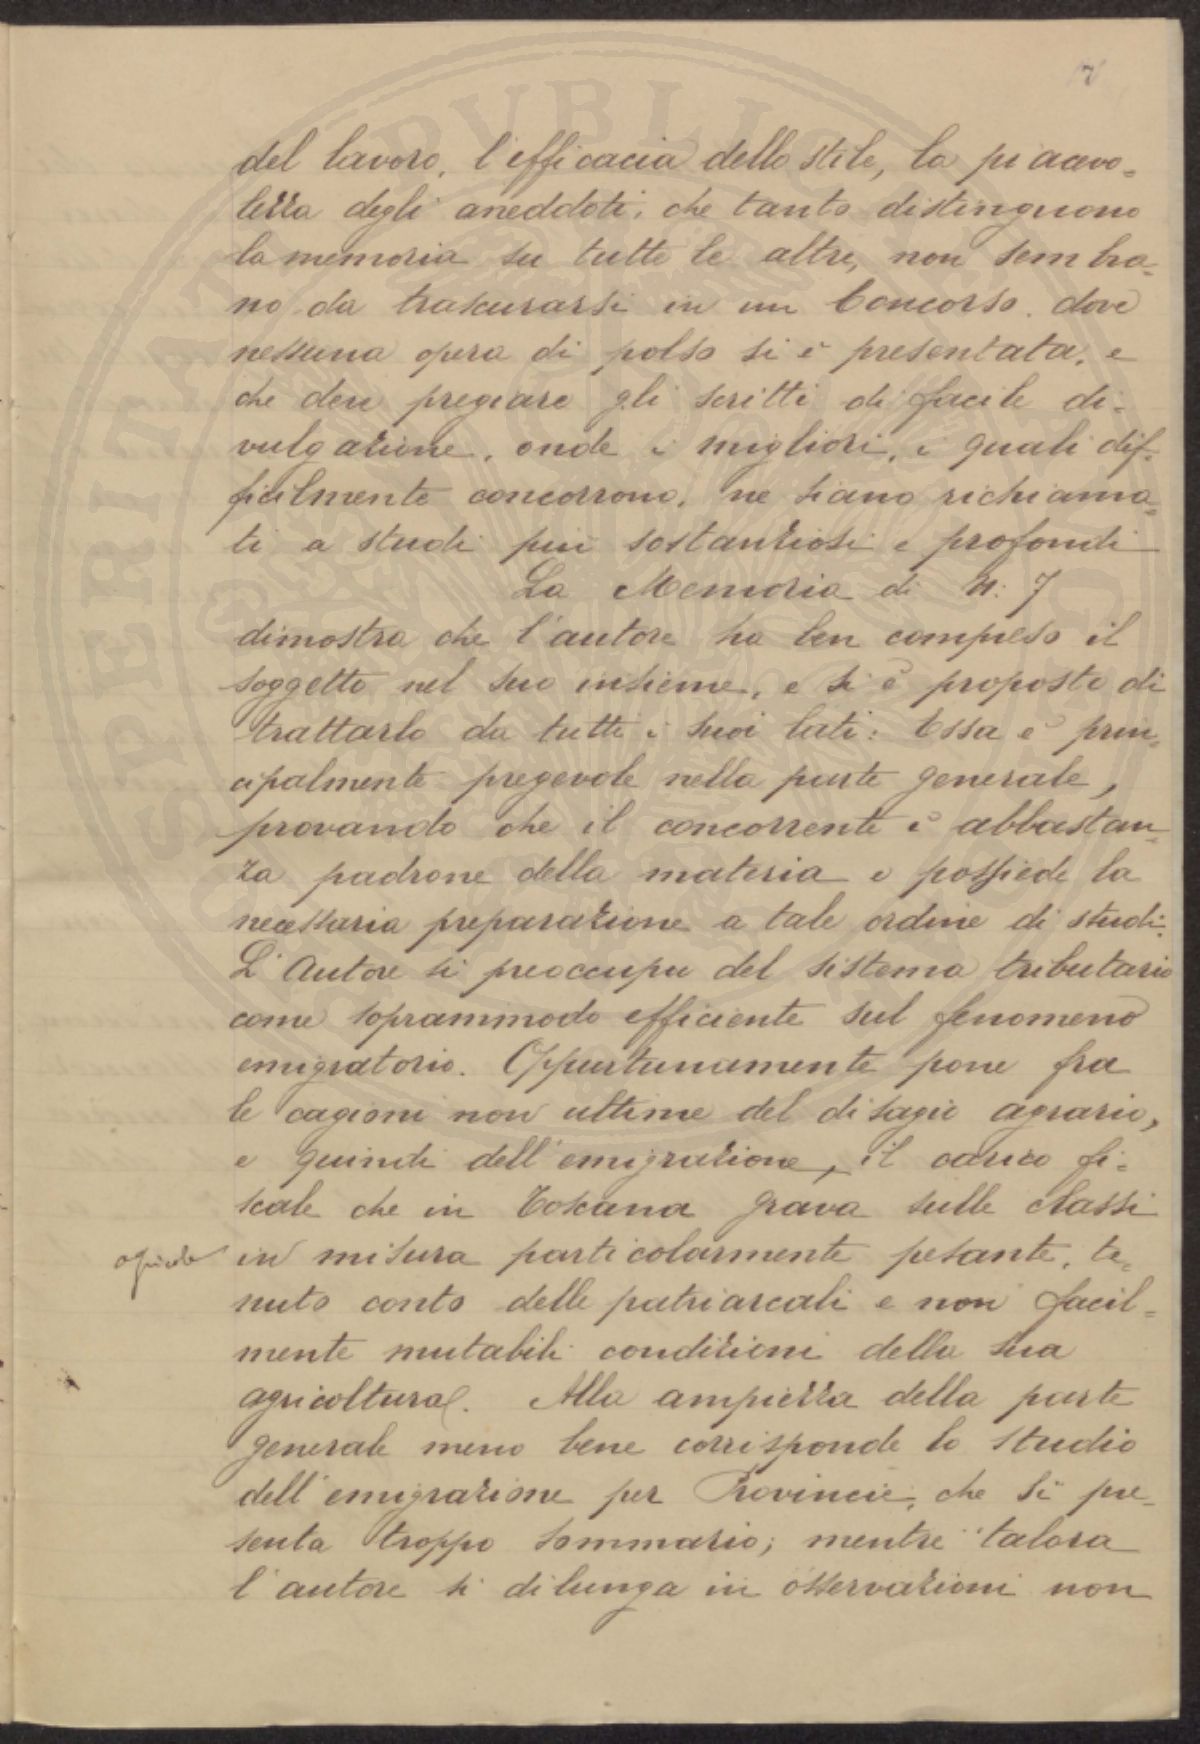 7
del lavoro, l'efficacia dello stile, la piacevo=
lezza degli aneddoti, che tanto distinguono
la memoria su tutte le altre, non sembra=
no da trascurarsi in un Concorso, dove
nessuna opera di polso si è presentata, e
che deve pregiare gli scritti di facile di=
vulgazione, onde i migliori, i quali dif=
ficilmente concorrono, ne siano richiama=
ti a studi più sostanziosi e profondi
La Memoria di N: 7
dimostra che l'autore ha ben compreso il
soggetto nel suo insieme, e si è proposto di
trattarlo da tutti i suoi lati: Essa è prin=
cipalmente pregevole nella parte generale,
provando che il concorrente è abbastan=
za padrone della materia e possiede la
necessaria preparazione a tale ordine di studi.
L'Autore si preoccupa del sistema tributario
come soprammodo efficiente sul fenomeno
emigratorio. Opportunamente pone fra
le cagioni non ultime del disagio agrario,
e quindi dell'emigrazione, il carico fi=
scale che in Toscana grava sulle classi
agricole in misura particolarmente pesante, te=
nuto conto delle patriarcali e non facil=
mente mutabili condizioni della sua
agricoltura. Alla ampiezza della parte
generale meno bene corrisponde lo studio
dell'emigrazione per Provincie, che si pre=
senta troppo sommario; mentre talora
l'autore si dilunga in osservazioni non
SPERITAT PVBLICA